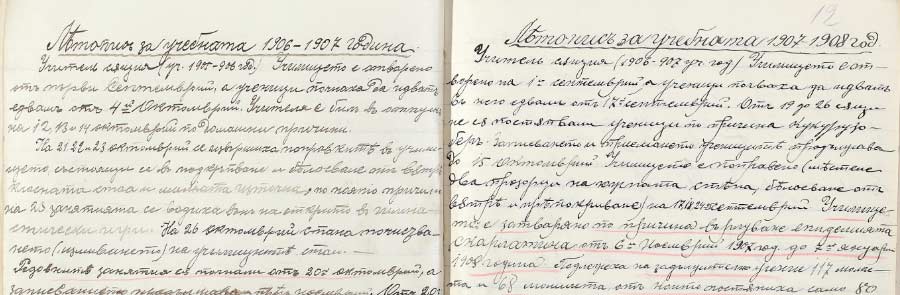 Лѣтопись за учебната 1906-1907 година.
Учитель сящия (уч. 1905-906 год.) Училището е отварено
отъ първи Септемврий, а ученици почнаха да идватъ
едвамъ отъ 4ий Октомврий. Учителя е билъ въ отпускъ
на 12, 13 и 14 октомврий по домашни причини.
На 21, 22 и 23 октомврий се извършиха поправкитѣ въ учили-
щето, състоящи се въ подкриване и бѣлосване отъ вѣтрѣ
класната стая и малката, по която причина
на 23 занятията се водиха вънъ на открито въ гимна-
стически игри. На 26 октомврий стана почисва-
нето (измиването) на училищнитѣ стаи.
Редовнитѣ занятия се почнали отъ 20й октомврий, а
записването продължава презъ ноемврий. Отъ 20
12
Лѣтопись за учебната 1907-1908 год
Учитель сящия (1906-907 уч. год) Училището е от-
ворено на 1й септемврий, а ученици почваха да идватъ
въ него едвамъ отъ 17й септемврий. Отъ 19 до 26 сящи
не сѫ постѫпвали ученици по причина кукурузо-
беръ. Записването и приеманието ученицитѣ продължава
до 15 октомврий. Училището е поправено (
два прозорци на южната стѣна, бѣлосване отъ
вѣтрѣ и прѣпокриване) на септемврий. Училище-
то е затварено по причина върлуване епидемията
скарлатина отъ 6й Ноемврий 1907 год. до 7й януари
1908 година. Подлежаха на задължително учение 117 момче-
та и 68 момичета, отъ които постѫпиха само 80